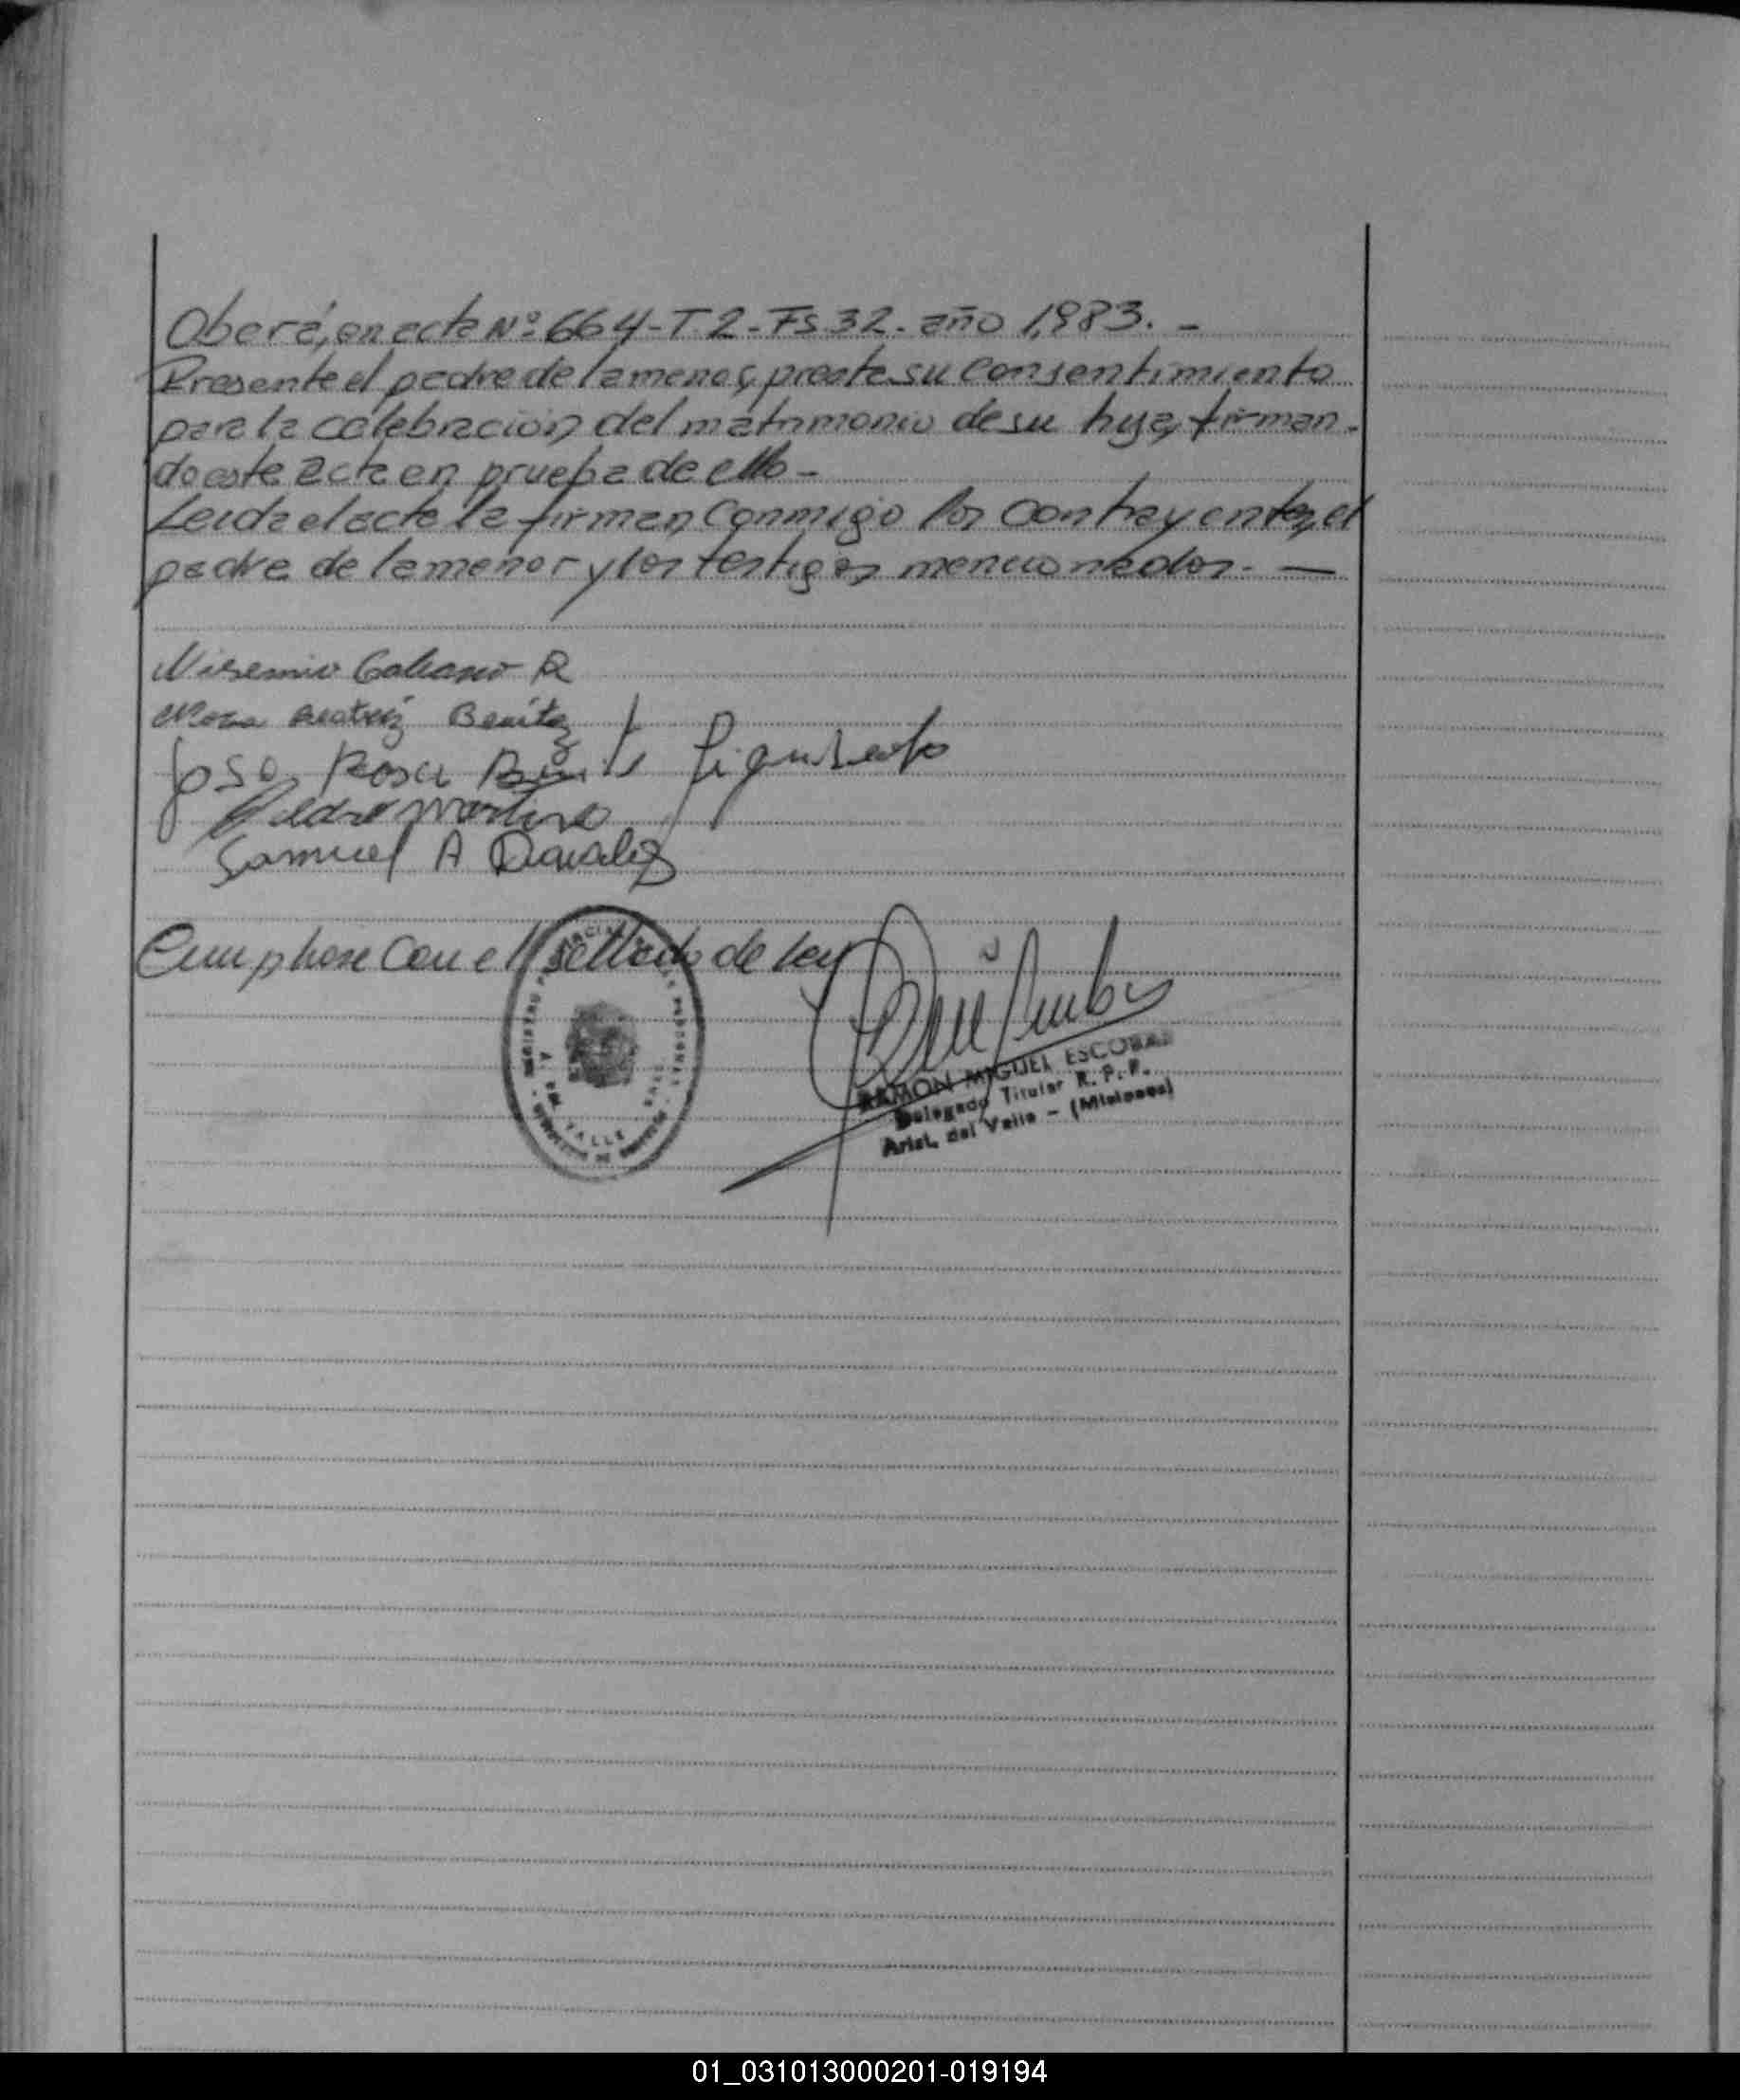 Oberá, en acta Nº 664-T.2-Fs.32. año 1,983. -
Presente el padre de la menor, presta su consentimiento
para la celebración del matrimonio de su hija, firman-
do este acta en prueba de ello -
Leida el acta la firman, conmigo los contrayentes, el
padre de la menor y los testigos mencionados. —
Galeano R
Rosa Beatriz Benítez
José Rosa
Pedro Martine
Samuel A
Cumplase con el sellado de ley
VALLE
RAMON MIGUEL ESCOBAR
Delegado Titular R. P. P.
Arist. del Valle - (Misiones)
01_031013000201-019194